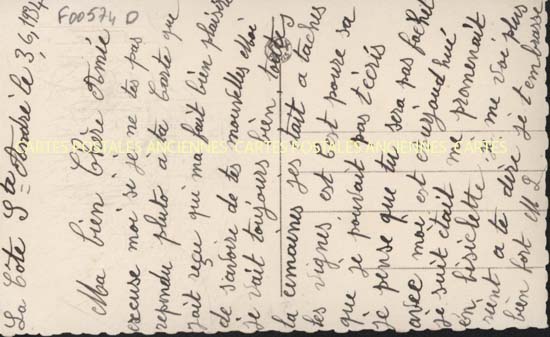 F00574 D
La Côte St André le 3,6,1934
Ma bien Chère Amie
excuse moi si je ne tes pas
repondu pluto a ta Carte que
jait reçu qui ma fait bien plaisir
de savoire de tes nouvelles choi
je vait toujours bien toute
la cemaines jes tait a taches
les vignes est Cest poure sa
que je pouvait pas técris
je pense que tu sera pas fachet
avec moi est aujourjauhué
je suit était me promenait
en bisiclette je me voi plus
rient a te dire je t'embrasse
bien fort M L
CARTES POSTALES ANCIENNES CARTES POSTALES ANCIENNES CARTES